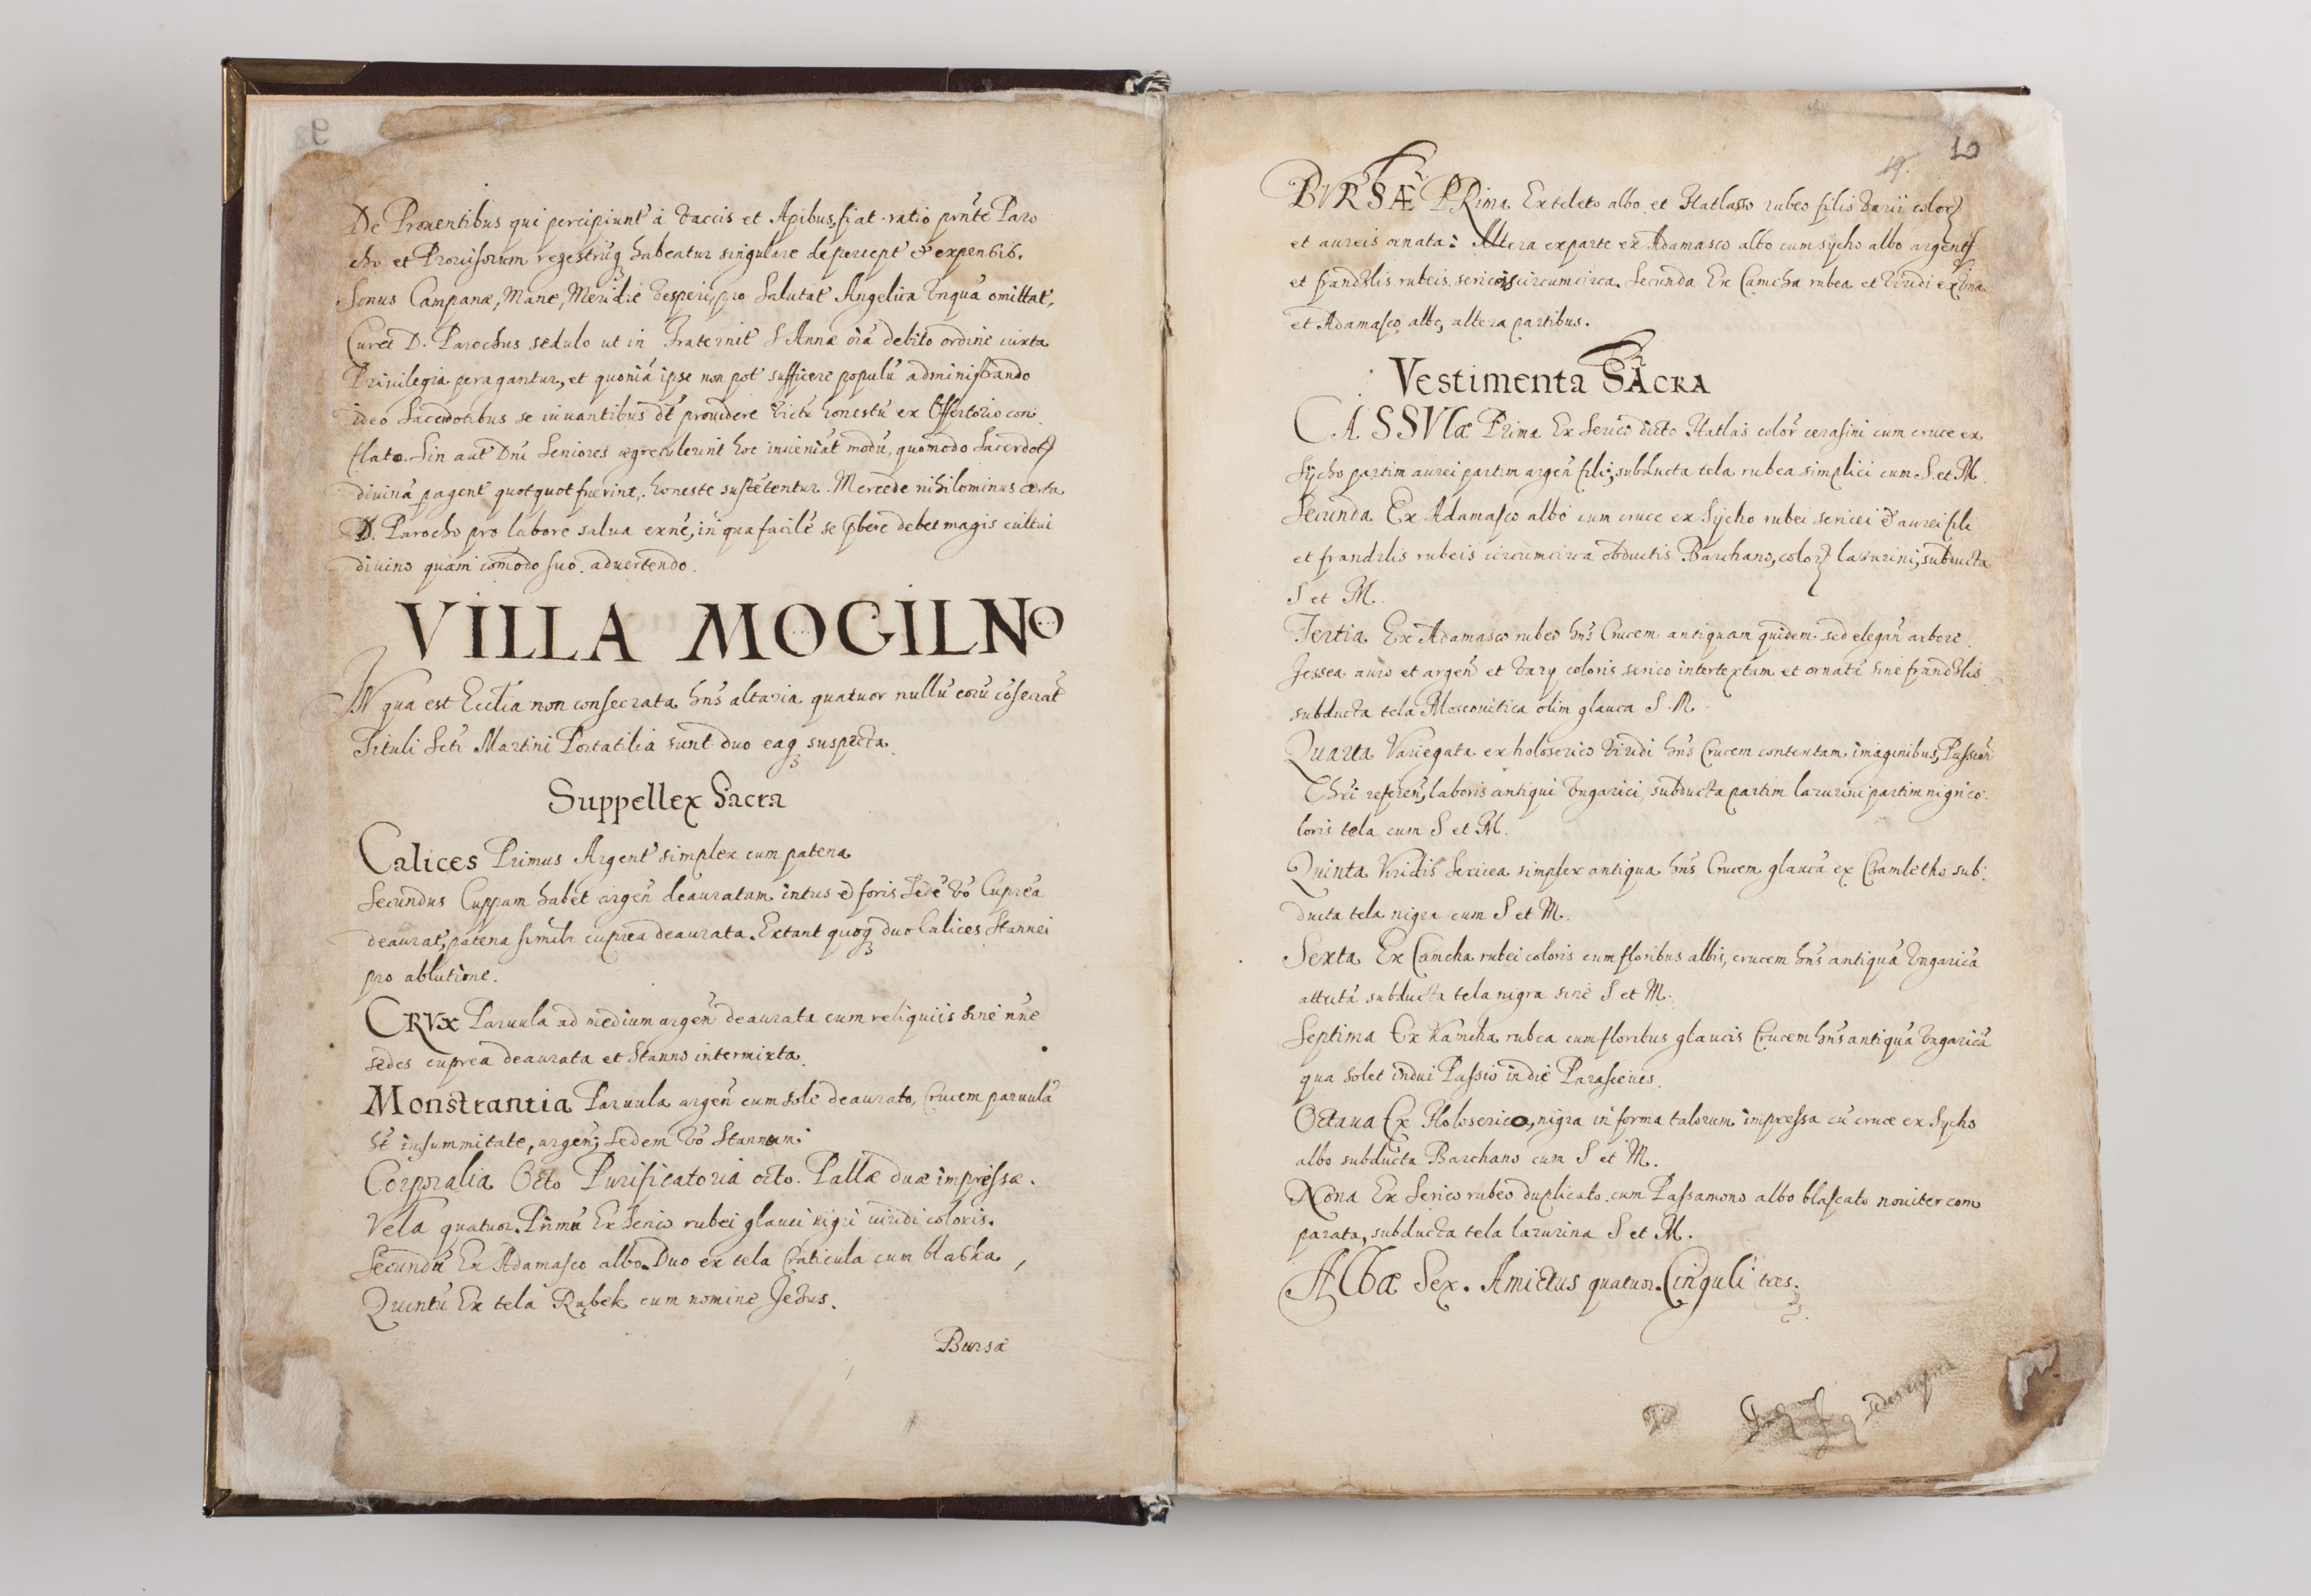 De Prouentibus qui percipiunt' à Vaccis et Apibus, fiat ratio prñte Paro
cho et Prouisorum regestruq habeatur singulare de percept' & expensis.
Sonus Campanæ, Mane, Meridie Vesperi, pro Salutat' Angelica Vnquã omittat',
Curet D. Parochus sedulo ut in Fraternit' S Annæ oĩa debito ordine iuxta
Priuilegia peragantur, et quoniã ipse non pot' sufficere populũ administrando
ideo Sacerdotibus se iuuantibus dt' prouidere Victũ honestũ ex Offertorio con
flato. Sin aut' Dñi Seniores ægre tulerint hoc inueniãt modũ, quomodo Sacerdotes
diuinã pagent' quotquot fuerint, honeste sustẽtentur. Mercede nihilominus certa
D. Parocho pro labore salua exñe, in qua facilẽ se pbere debet magis cultui
diuino quàm cõmodo suo aduertendo.
VILLA MOGILNO
IN qua est Ecclĩa non consecrata hñs altaria quatuor nullũ eorũ cõsecrat'
Tituli Scti Martini Portatilia sunt duo eaq suspecta.
Suppellex Sacra
Calices Primus Argent' simplex cum patena
Secundus Cuppam habet argeñ deauratam intus & foris Sedẽ Vo Cupreã
deaurat', patena simili cuprea deaurata. Extant quoq duo Calices Stannei
pro ablutione.
CRVX Paruula ad medium argeñ deaurata cum reliquiis sine nñe
sedes cuprea deaurata et Stanno intermixta.
Monstrantia Paruula argeñ cum sole deaurato, Crucem paruulã
ht' in summitate, argeñ, Sedem Vo Stannum
Corporalia Octo Purificatoria octo. Pallæ duæ impressæ.
Vela quatuor. Primũ Ex Serico rubei glauci nigri uiridi coloris.
Secundũ Ex Adamasco albo. Duo ex tela Craticula cum blaska,
Quintũ Ex tela Rąbek cum nomine Jesus.
Bursæ
19.
10
BVRSÆ PRima Ex teleto albo et Hatlasso rubeo filis Varii coloris
et aureis ornata: Altera ex parte ex Adamasco albo cum sycho albo argent'
et frandzlis rubeis sericeis circumcirca. Secunda Ex Camcha rubea et Viridi ex Vna
et Adamasco albo, altera partibus.
Vestimenta SACRA
CASSVlæ Prima Ex Serico dicto Hatlas color' cerasini cum cruce ex
Sycho partim aurei partim argeñ fili, subducta tela rubea simplici cum S. et M.
Secunda Ex Adamasco albo cum cruce ex Sycho rubei sericei & aurei fili
et frandzlis rubeis circumcirca obductis Barchano, coloris lazurini, subducta
S et M.
Tertia Ex Adamasco rubeo hñs Crucem antiquam quidem sed elegañ arbore
Jessea auro et argeñ et Vary coloris serico intertextam et ornatã sine frandzlis
subducta tela Moscouitica olim glauca S. M.
Quarta Variegata ex holoserico Viridi hñs Crucem contextam imaginibus, Passioñ
Chri refereñ, laboris antiqui Vngarici, subducta partim lazurini partim nigri co-
loris tela cum S et M.
Quinta Viridis Sericea simplex antiqua hñs Crucem glaucã ex Chamletho sub-
ducta tela nigra cum S et M.
Sexta Ex Camcha rubei coloris cum floribus albis, crucem hñs antiquã Vngaricã
attritã subducta tela nigra sine S et M.
Septima Ex Kamcha rubea cum floribus glaucis Crucem hñs antiquã Vngaricã
qua solet indui Passio in die Parasceues.
Octaua Ex Holoserico, nigra in forma talorum impressa cũ cruce ex Sycho
albo subducta Barchano cum S et M.
Nona Ex Serico rubeo duplicato cum Passamono albo blascato nouiter com
parata, subducta tela lazurina S et M.
Albæ Sex. Amictus quatuor. Cinguli tres.
sedes cuprea